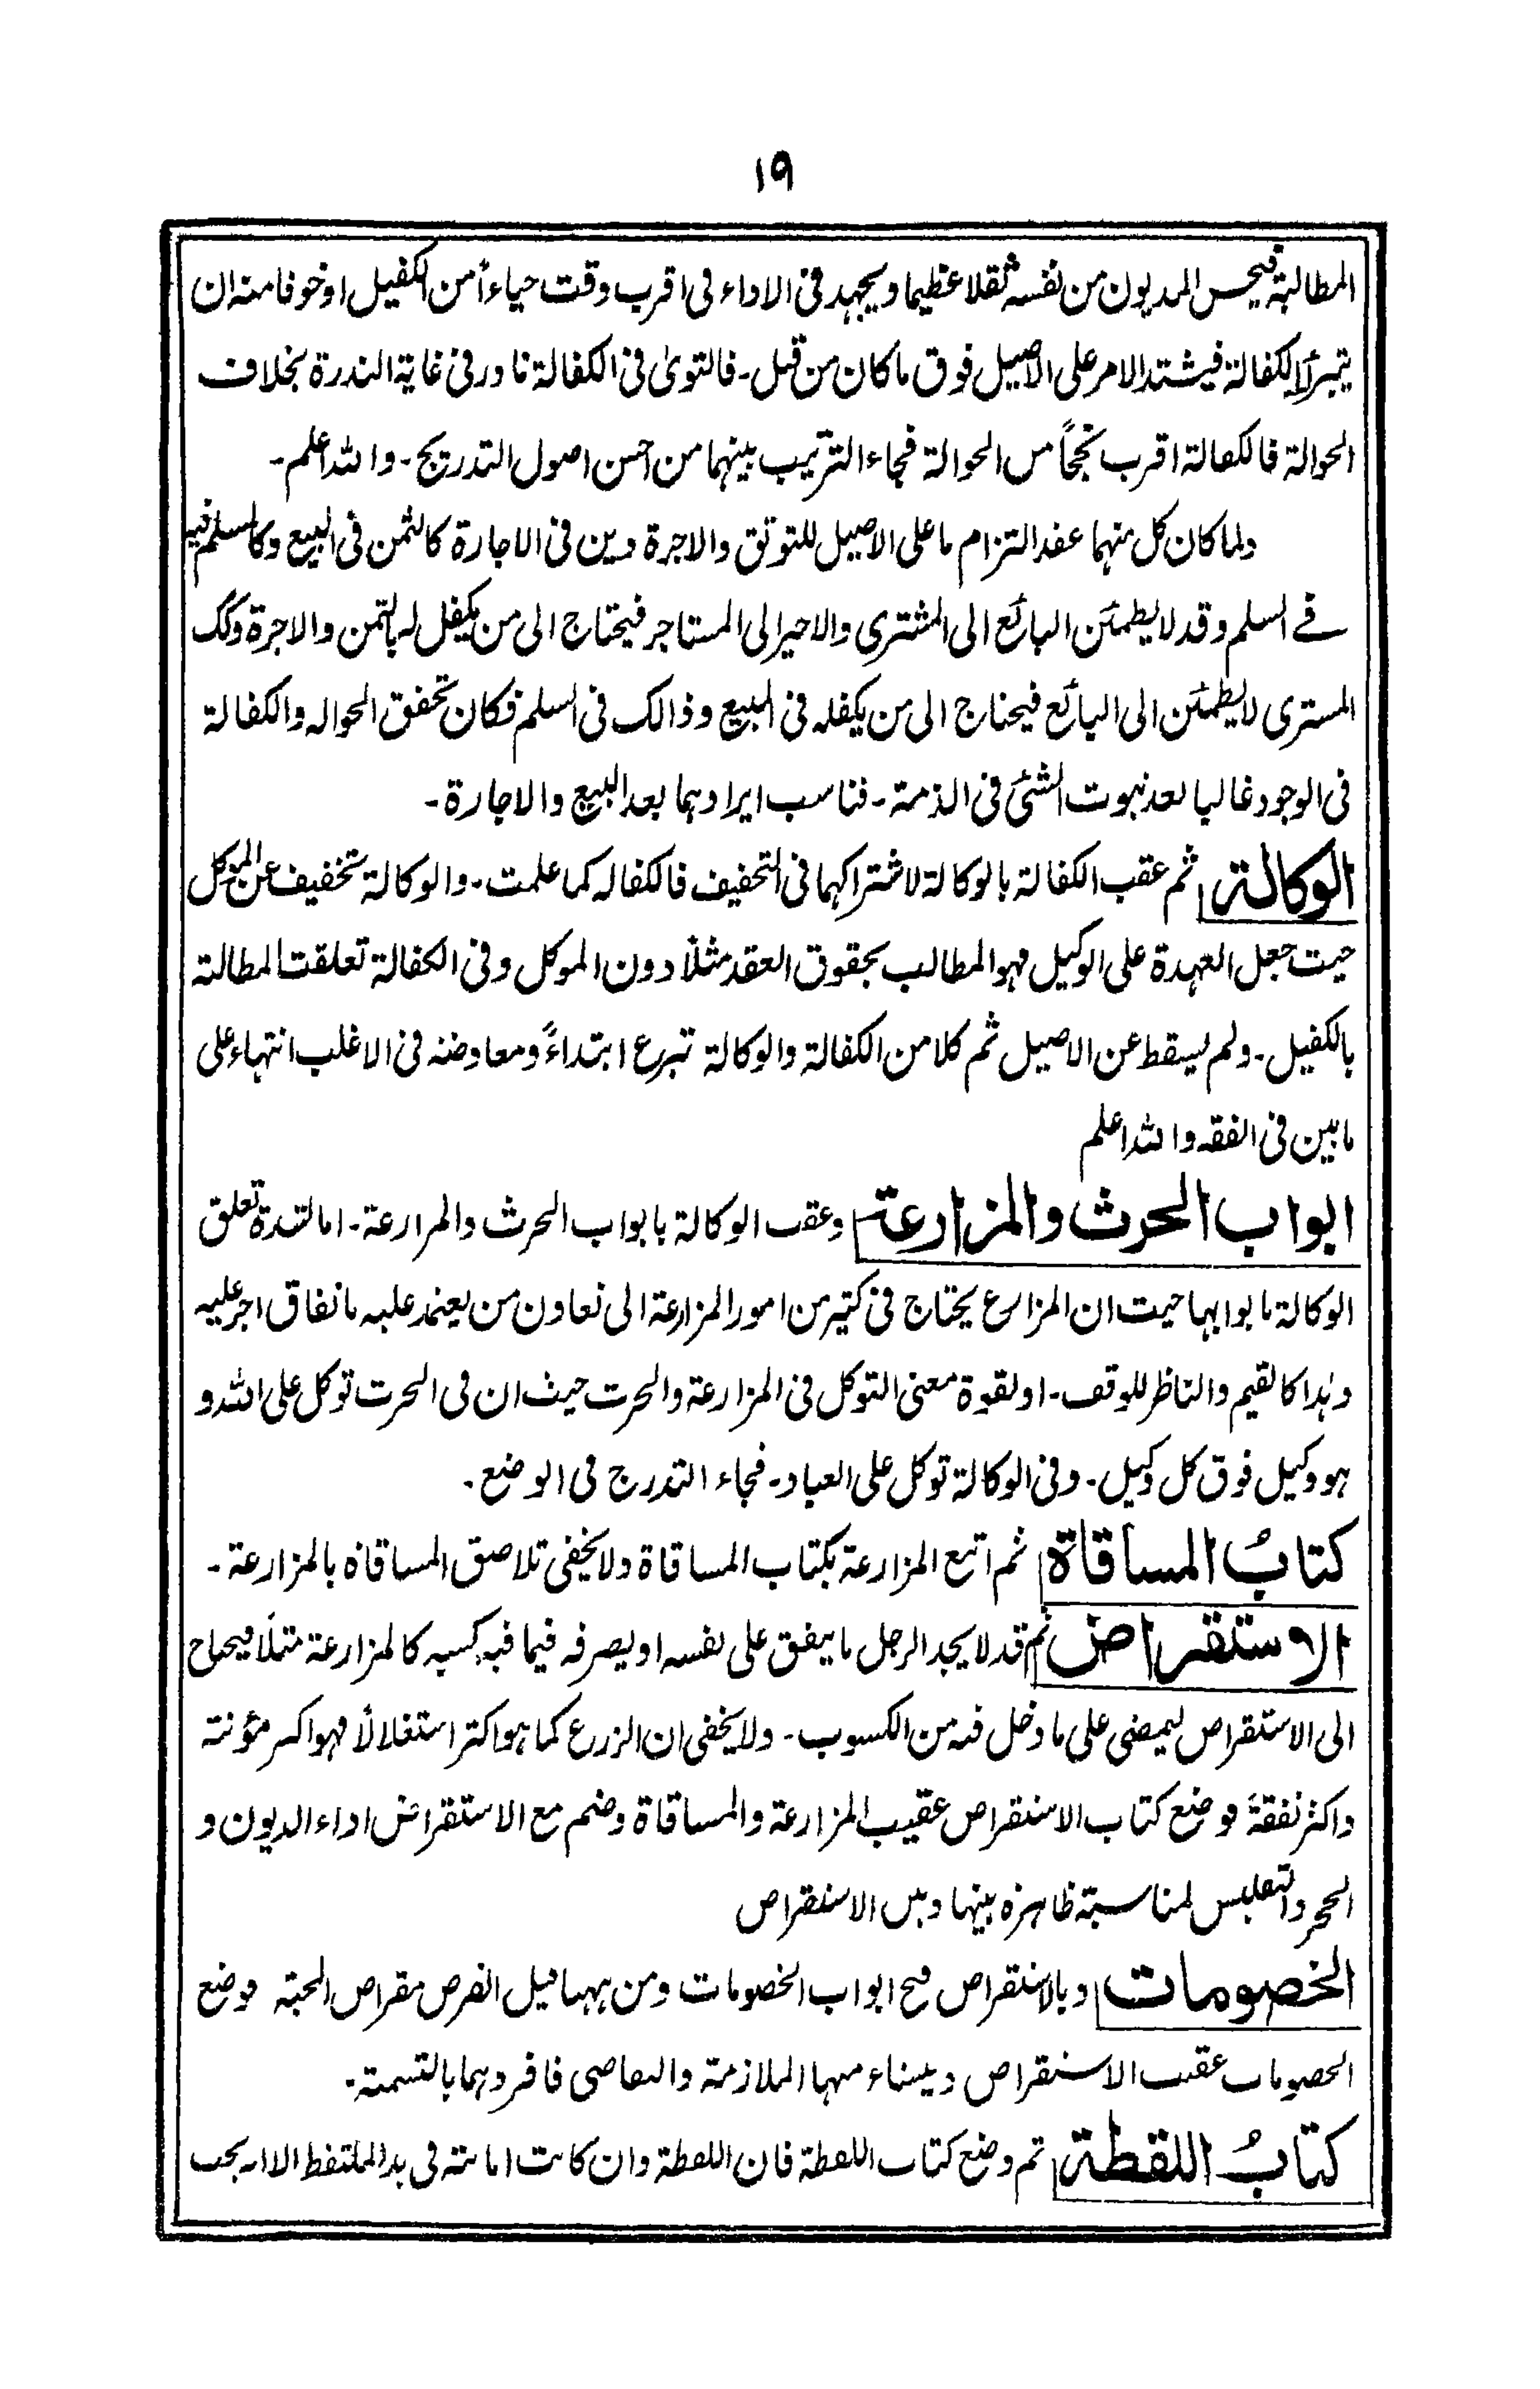 ١٩
المطالبة فيحس المديون من نفسه ثقلا عظيما ويجهد فى الاداء فى اقرب وقت حياءاً من الكفيل او خوفا منه ان
يتبرأ لكفالة فيشتد الامر على الاصيل فوق ما كان من قبل۔ فالتوىٰ فى الكفالة نادر فى غاية الندرة بخلاف
الحوالة فالكفالة اقرب نجحاً من الحوالة فجاء الترتيب بينهما من احسن اصول التدريج۔ والله اعلم۔
ولما كان كل منهما عقد التزام ما على الاصيل للتوثق والاجرة دين فى الاجارة كالثمن فى البيع وكالمسلم فيه
فے السلم وقد لا يطمئن البائع الى المشترى والاجير الى المستاجر فيحتاج الى من يكفل له بالثمن والاجرة وكك
المشترى لا يطمئن الى البائع فيحتاج الى من يكفله فى المبيع وذالك فى السلم فكان تحقق الحواله والكفالة
فى الوجود غالبا بعد ثبوت الشئ فى الذمة۔ فناسب ايرادهما بعد البيع والاجارة۔
الوكالة ثم عقب الكفالة بالوكالة لاشتراكهما فى التخفيف فالكفاله كما علمت۔ والوكالة تخفيف عن الموكل
حيث جعل العهدة على الوكيل فهو المطالب بحقوق العقد مثلاً دون الموكل وفى الكفالة تعلقت المطالبة
بالكفيل۔ ولم يسقط عن الاصيل ثم كلا من الكفالة والوكالة تبرع ابتداءً ومعاوضه فى الاغلب انتهاء على
ما بين فى الفقه والله اعلم
ابواب الحرث والمزارعة وعقب الوكالة بابواب الحرث والمزارعة۔ اما لشدة تعلق
الوكالة بابوابها حيث ان المزارع يحتاج فى كثير من امور المزارعة الى تعاون من يعتمد عليه بانفاق اجر عليه
وهذا كالقيم والناظر للوقف۔ او لقوة معنى التوكل فى المزارعة والحرث حيث ان فى الحرث توكل على الله و
هو وكيل فوق كل وكيل۔ وفى الوكالة توكل على العباد۔ فجاء التدرج فى الوضع۔
كتابُ المساقاة ثم اتبع المزارعة بكتاب المساقاة ولا يخفى تلاصق المساقاة بالمزارعة۔
الاستقراض ثم قد لا يجد الرجل ما ينفق على نفسه او يصرفه فيما فيه كسبه كالمزارعة مثلًا فيحتاج
الى الاستقراض ليمضى على ما دخل فيه من الكسوب۔ ولا يخفى ان الزرع كما هو اكثر استغلالاً فهو اكبر مؤنته
واكثر نفقة فوضع كتاب الاستقراض عقيب المزارعة والمساقاة وضم مع الاستقراض اداء الديون و
الحجر والتفليس لمناسبة ظاهرة بينها وبين الاستقراض
الخصومات وبالاستقراض فتح ابواب الخصومات ومن ههنا قيل القرض مقراض المحبة فوضع
الخصومات عقيب الاستقراض وينشاء منها الملازمة والتقاضى فافردهما بالتسمية۔
كتابُ اللقطة ثم وضع كتاب اللقطة فان اللقطة وان كانت امانة فى يد الملتقط الا انه يجب